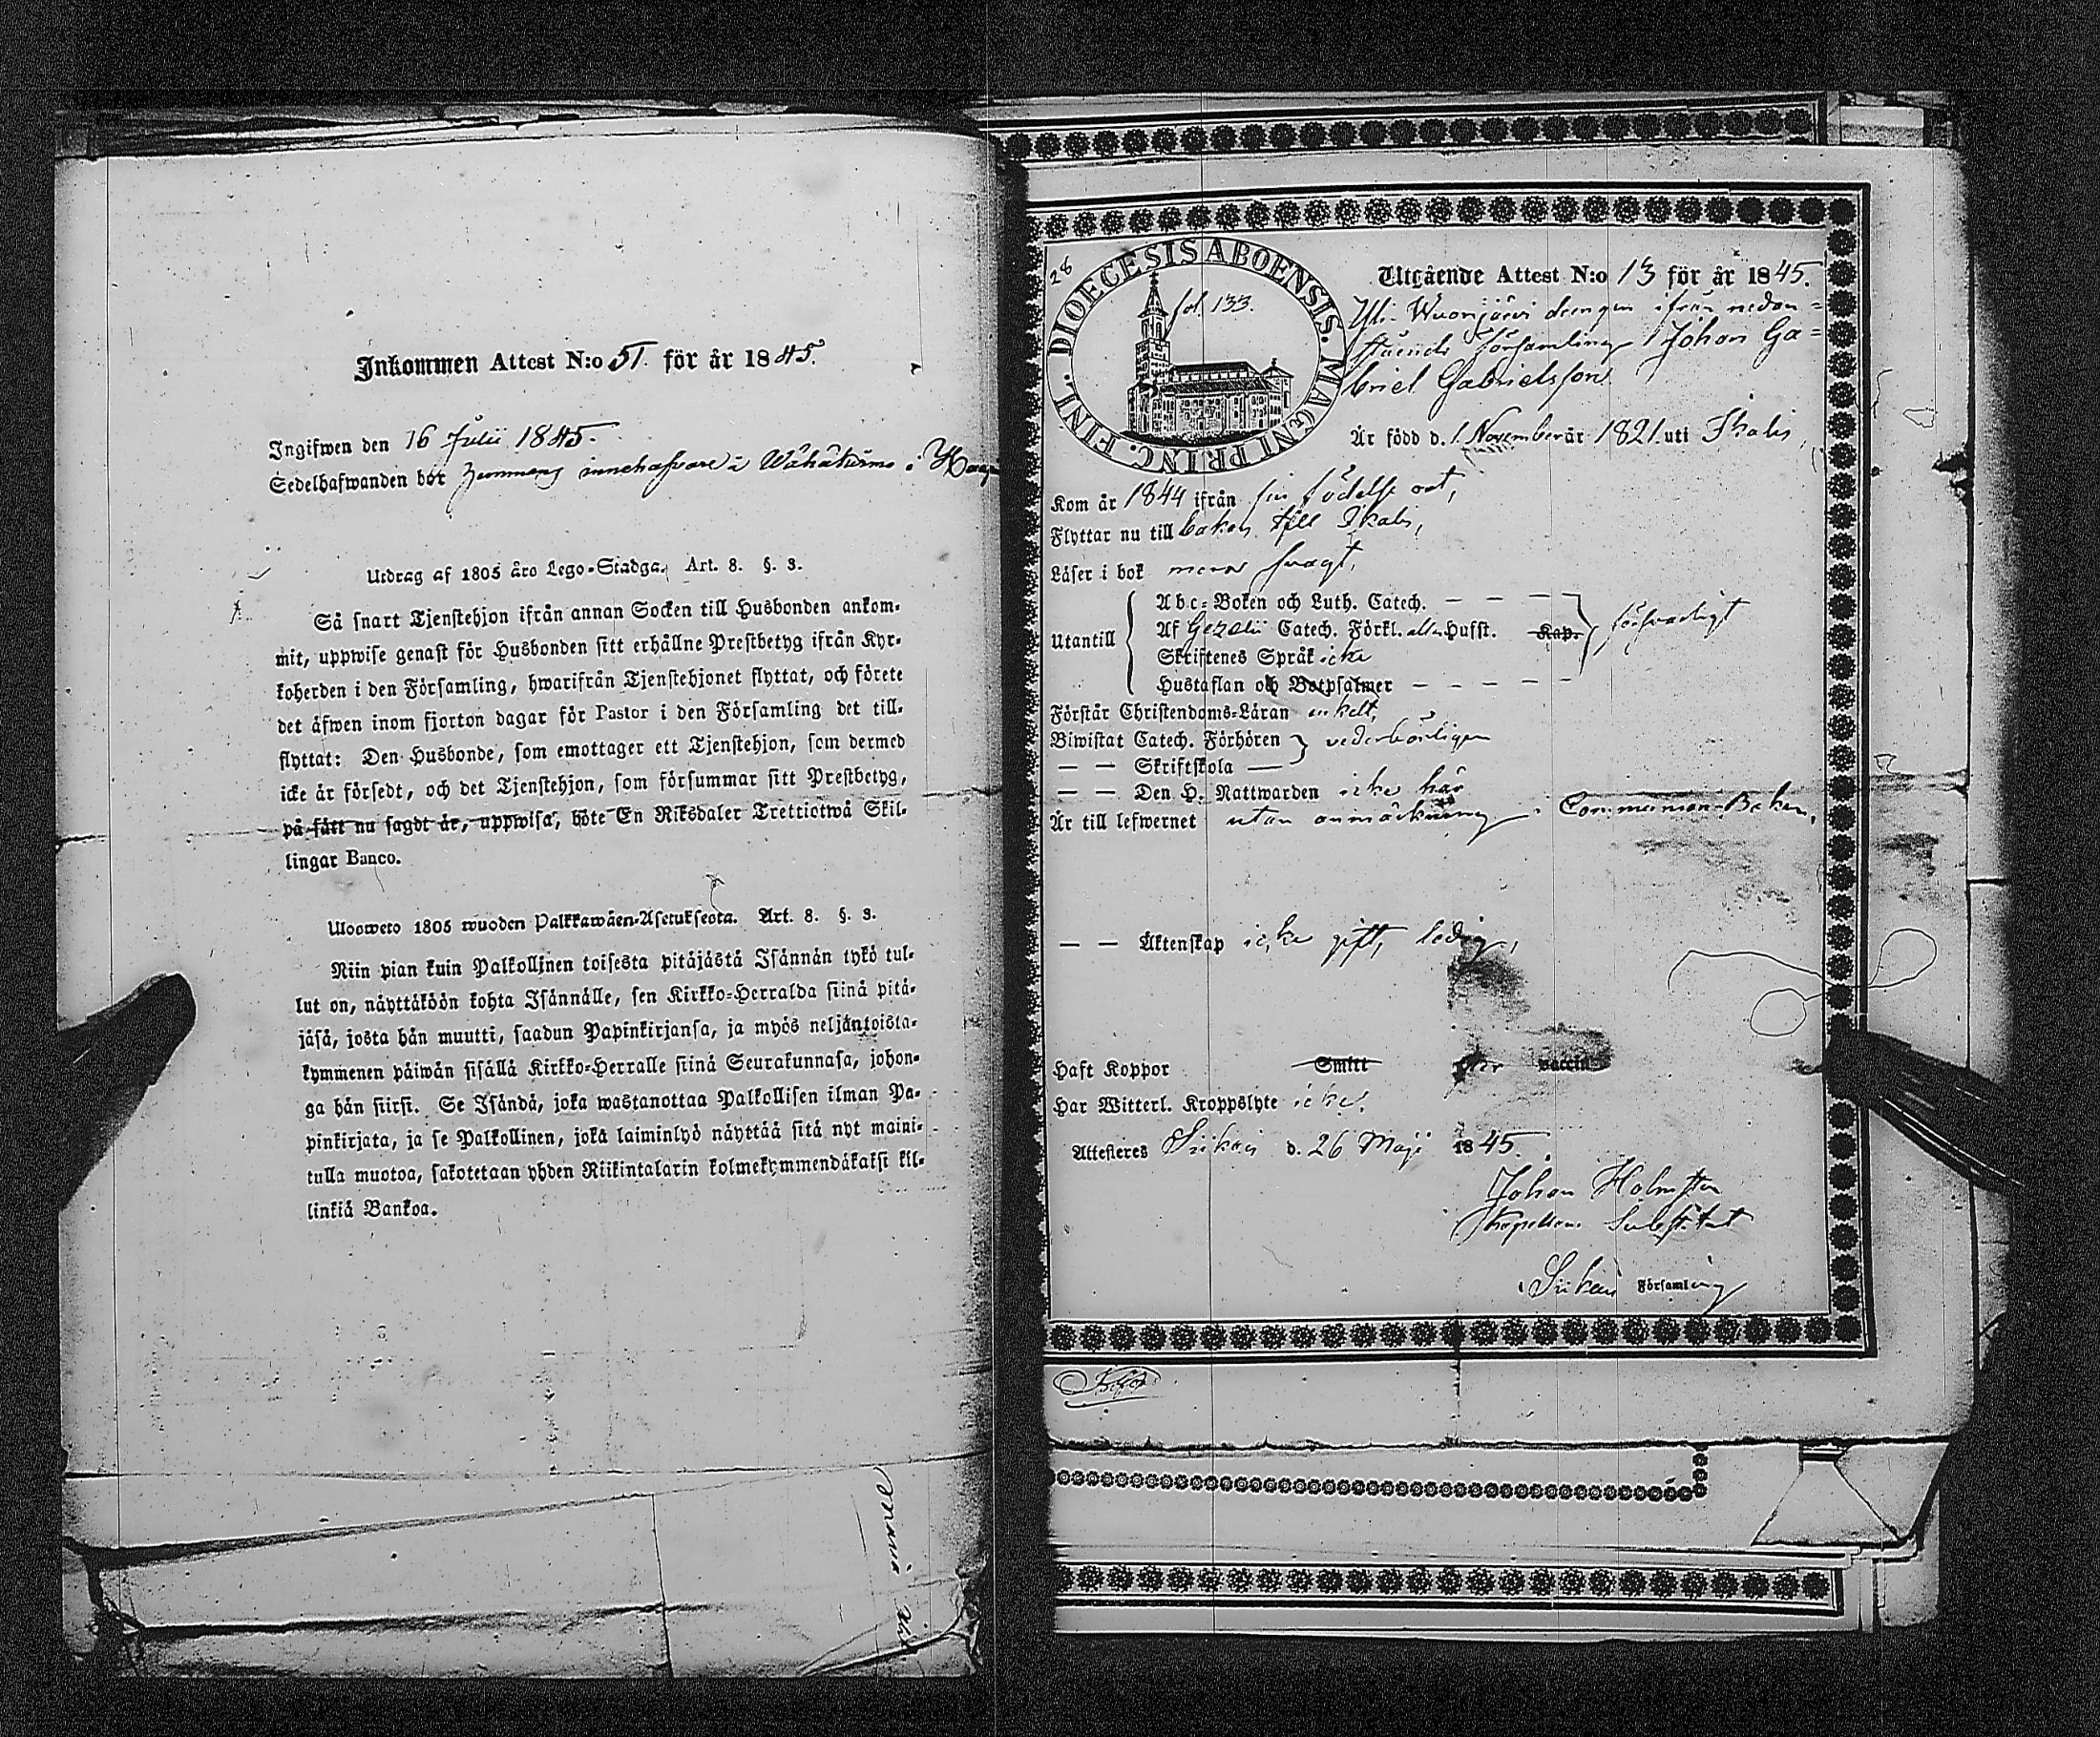 Inkommen Attest N:o 51. för år 1845.
Ingifwen den 16 Julii 1845.
Sedelhafwanden bor innehafvare i Wähäkürmo i
Utdrag af 1805 års Lego-Stadga. Art. 8. §. 3.
Så snart Tjenstehjon ifrån annan Socken till Husbonden ankom-
mit, uppwise genast för Husbonden sitt erhållne Prestbetyg ifrån Kyr-
koherden i den Församling, hwarifrån Tjenstehjonet flyttat, och förete
det äfwen inom fjorton dagar för Pastor i den Församling det till-
flyttat: Den Husbonde, som emottager ett Tjenstehjon, som dermed
icke är försedt, och det Tjenstehjon, som försummar sitt Prestbetyg,
på sätt nu sagdt är, uppwisa, böte En Riksdaler Trettiotwå Skil-
lingar Banco.
Ulosweto 1805 wuoden Palkkawäen-Asetuksesta. Art. 8. §. 3.
Niin pian kuin Palkollinen toisesta pitäjästä Isännän tykö tul-
lut on, näyttäköön kohta Isännälle, sen Kirkko-Herralda siinä pitä-
jäsä, josta hän muutti, saadun Papinkirjansa, ja myös neljäntoista-
kymmenen päiwän sisällä Kirkko-Herralle siinä Seurakunnasa, johon-
ga hän siirsi. Se Isändä, joka wastanottaa Palkollisen ilman Pa-
pinkirjata, ja se Palkollinen, joka laiminlyö näyttää sitä nyt maini-
tulla muotoa, sakotetaan yhden Riikintalarin kolmekymmendäkaksi kil-
linkiä Bankoa.
28
DIOECESIS ABOENSIS. MAGNI PRINC. FINL.
fol. 133.
Utgående Attest N:o 13 för år 1845.
Yli-Wuorijärvi drengen ifrån nedan=
stående församling Johan Ga=
briel Gabrielsson
Är född d. 1. November år 1821. uti Ikalis,
Kom år 1844 ifrån sin födelse ort,
Flyttar nu till baka till Ikalis,
Läser i bok svagt,
Utantill
Abc-Boken och Luth. Catech. — — —
Af Gezelii Catech. Förkl. Husst. Kap. försvarligt
Skriftenes Språk icke
Hustaflan och Botpsalmer — — — — —
Förstår Christendoms-Läran enkelt,
Biwistat Catech. Förhören vederbörligen
— — Skriftskola —
— — Den H. Nattwarden icke här
Är till lefwernet utan anmärkning i Communion-Boken.
— — Äktenskap icke gift, ledig,
Haft Koppor Smitt eller vaccin
Har Witterl. Kroppslyte icke.
Attesteres d. 26 Maji 1845.
Johan Holmsten
Kapellans Substitut
Församling